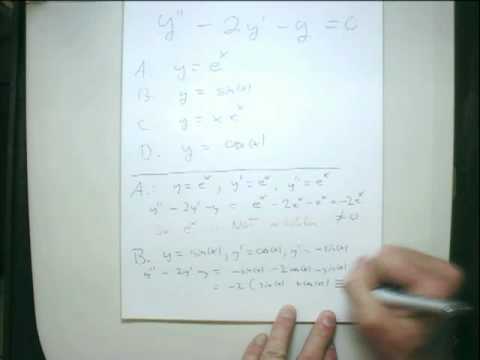 y'' - 2y' - y = 0
A. y = e^x
B. y = sin(x)
C. y = x e^x
D. y = cos(x)
A.: y = e^x, y' = e^x, y'' = e^x
y'' - 2y' - y = e^x - 2e^x - e^x = -2e^x
So e^x is Not a solution ≠ 0
B. y = sin(x), y' = cos(x), y'' = -sin(x)
y'' - 2y' - y = -sin(x) - 2cos(x) - sin(x)
= -2 (sin(x) + cos(x)) ≡